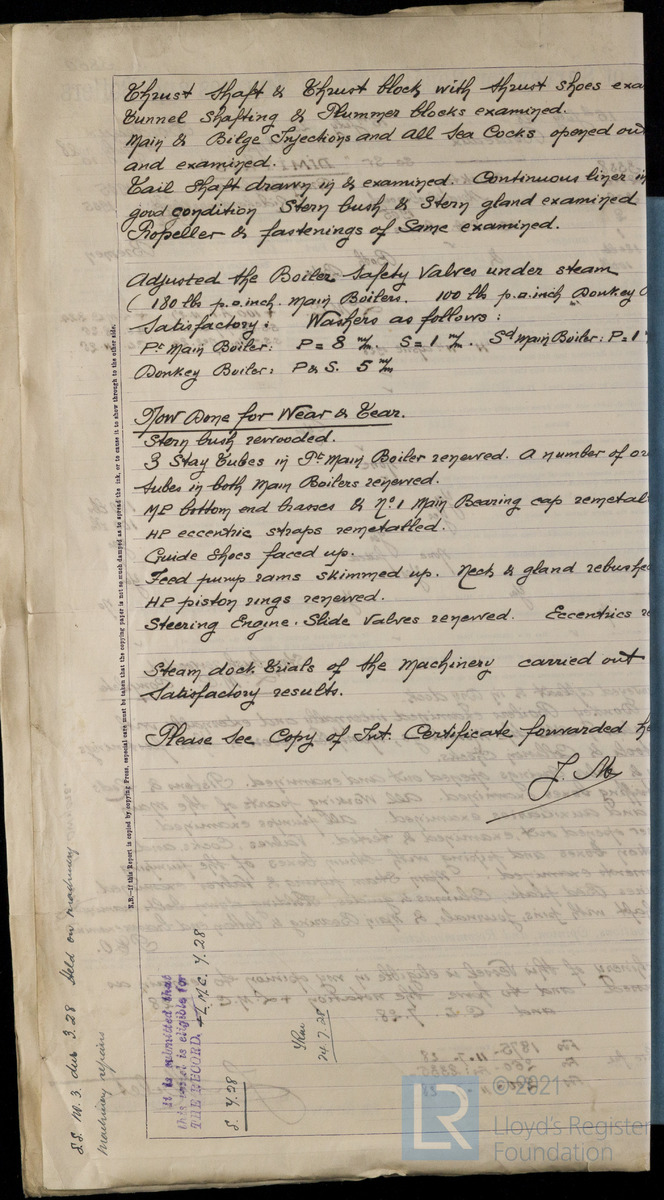 Thrust Shaft & Thrust block with thrust shoes exa
Tunnel Shafting & Plummer blocks examined.
Main & Bilge Injections and all Sea Cocks opened out
and examined.
Tail Shaft drawn in & examined. Continuous liner in
good condition Stern bush & Stern gland examined
Propeller & fastenings of Same examined.
Adjusted the Boiler Safety Valves under steam
(180 lb p.a.inch. Main Boilers. 100 lb p.a.inch Donkey
Satisfactory: Washers as follows:
Pt Main Boiler: P = 8 m/m. S = 1 m/m. Sd Main Boiler: P = 1
Donkey Boiler: P & S. 5 m/m
Now Done for Wear & Tear.
Stern bush rewooded.
3 Stay Tubes in Pt Main Boiler renewed. A number of
tubes in both Main Boilers renewed.
MP bottom end brasses & No 1 Main Bearing cap remetal
HP eccentric straps remetalled.
Guide Shoes faced up.
Feed pump rams skimmed up. Neck & gland rebushe
HP piston rings renewed.
Steering Engine. Slide Valves renewed. Eccentrics
Steam dock trials of the Machinery carried out
Satisfactory results.
Please See Copy of Int. Certificate forwarded
N.B.—If this Report is copied by copying Press, especial care must be taken that the copying paper is not so much damped as to spread the ink, or to cause it to show through to the other side.
SS. No. 3. due 3.28 Held on machinery
Machinery repairs
It is submitted that
this vessel is eligible for
THE RECORD. + L.M.C. 7.28
S. 7.28
24.7.28
© 2021
LR
Lloyd's Register
Foundation